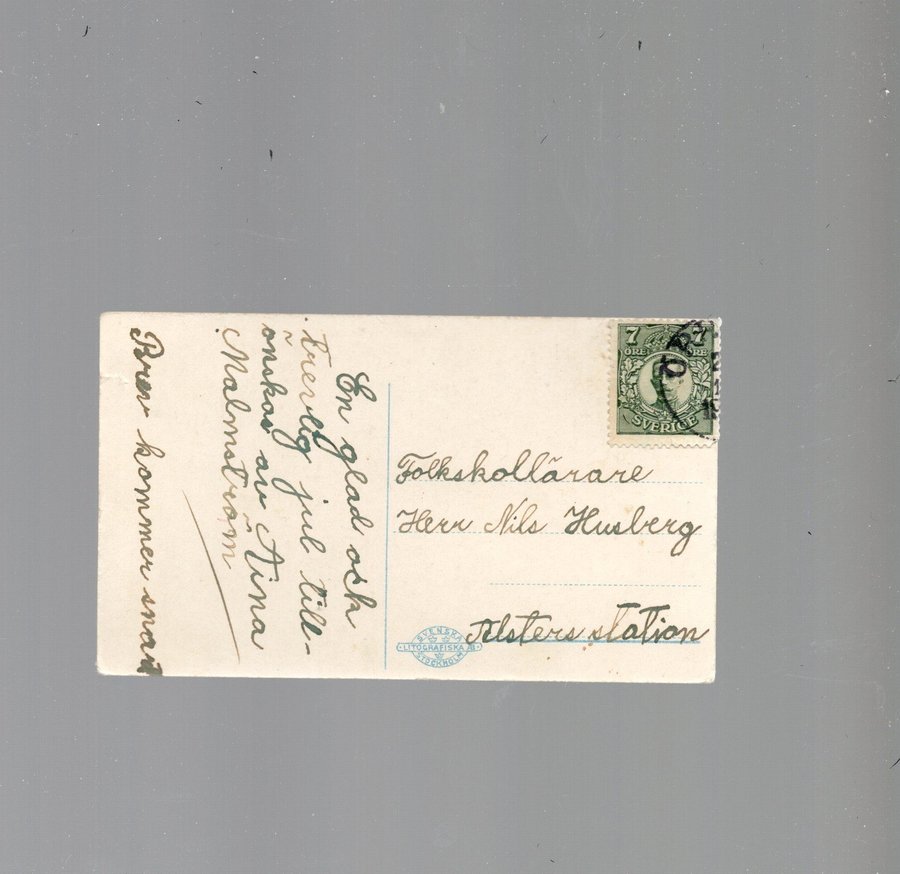 En glad och
trevlig jul till-
önskas av Aina
Malmström
Brev kommer snart
7 7
ÖRE ÖRE
SVERIGE
Folkskollärare
Herr Nils Husberg
Alsters station
SVENSKA
LITOGRAFISKA AB
STOCKHOLM